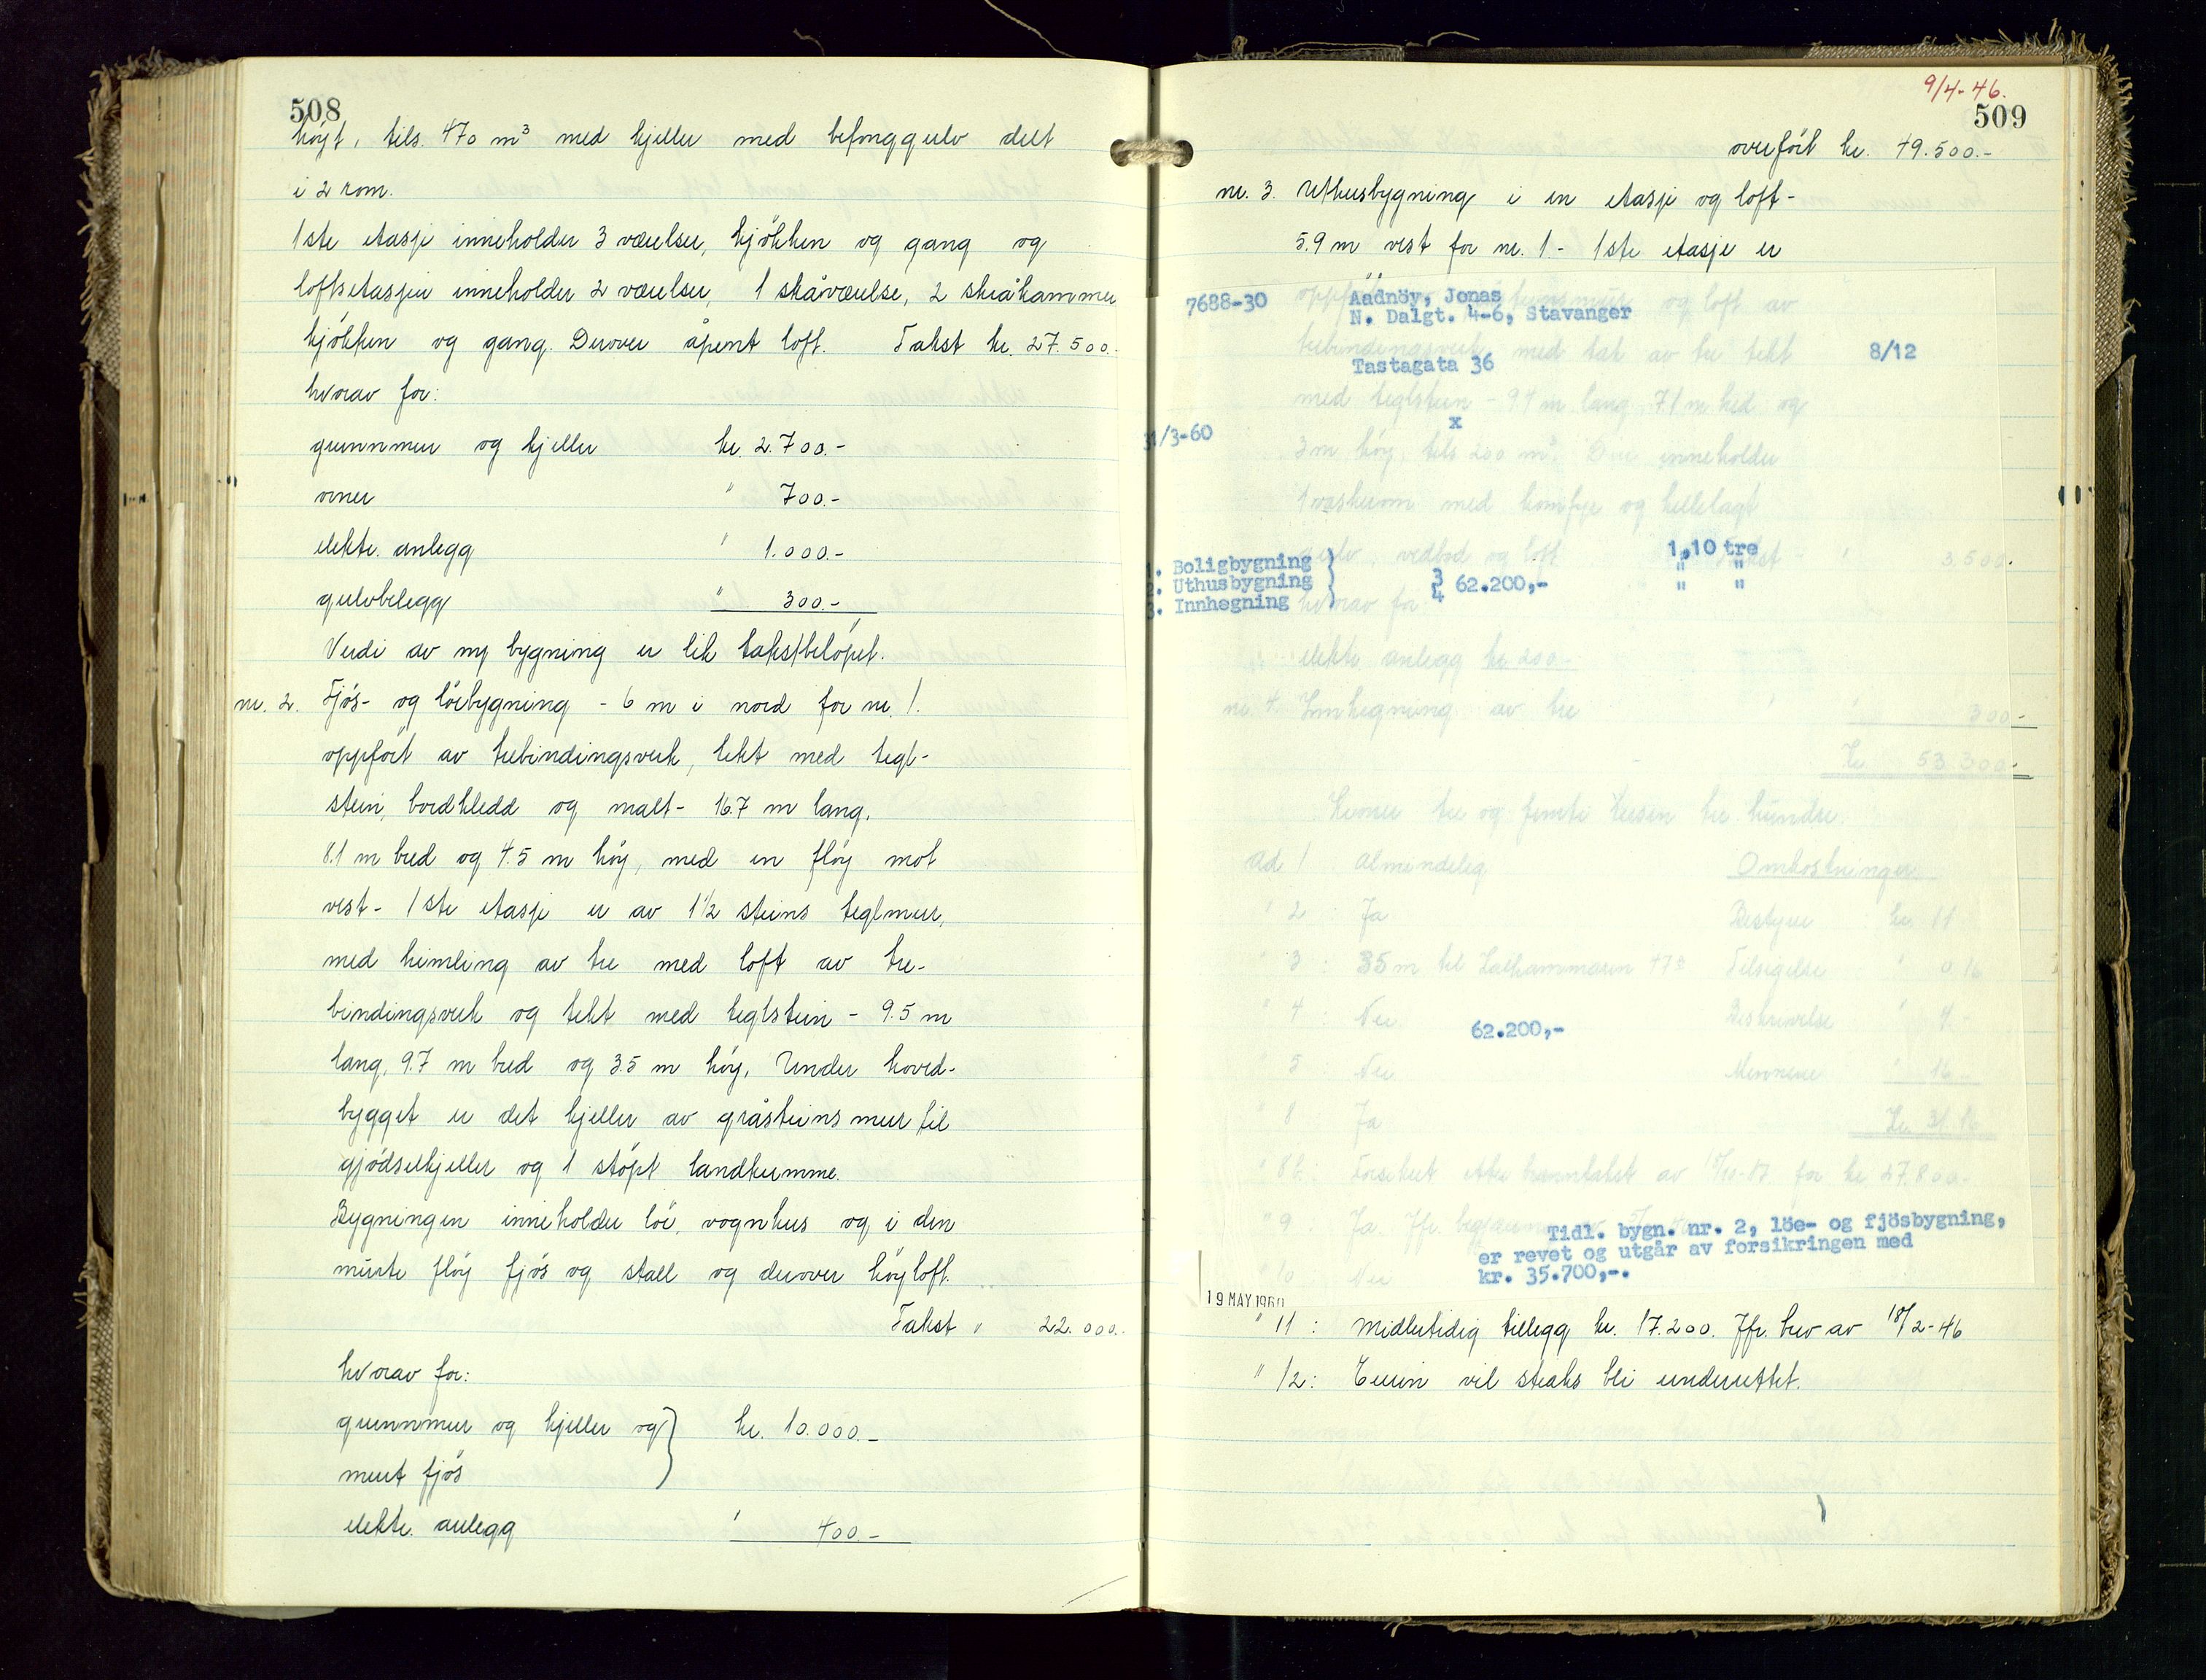 508
höyt, tils. 470 m³ med kjeller med betonggulv delt
i 2 rom.
1ste etasje inneholder 3 værelser, kjökken og gang og
loftsetasjen inneholder 2 værelser, 1 skåværelse, 2 skråkammer
kjökken og gang. Derover åpent loft. Takst kr. 27.500.
hvorav for:
grunnmur og kjeller kr. 2.700.-
ovner " 700.-
elektr. anlegg " 1.000.-
gulvbelegg " 300.-
Verdi av ny bygning er lik takstbelöpet.
nr. 2. Fjös- og löebygning - 6 m i nord for nr. 1.
oppfört av trebindingsverk, tekt med tegl-
stein, bordkledd og malt - 16.7 m lang,
8.1 m bred og 4.5 m höy, med en flöy mot
vest - 1ste etasje er av 1½ steins teglmur,
med himling av tre med loft av tre-
bindingsverk og tekt med teglstein - 9.5 m
lang, 9.7 m bred og 3.5 m höy. Under hoved-
bygget er det kjeller av gråsteinsmur til
gjödselkjeller og 1 stöpt landkumme.
Bygningen inneholder löe, vognhus og i den
murte flöy fjös og stall og derover höyloft.
Takst " 22.000.-
hvorav for:
grunnmur og kjeller og } kr. 10.000.-
murt fjös
elektr. anlegg " 400.-
9/4-46.
509
overfört kr. 49.500.-
nr. 3. Uthusbygning i en etasje og loft -
5.9 m vest for nr. 1 - 1ste etasje er
oppfört og loft av
7688-30 Aadnöy, Jonas
N. Dalgt. 4-6, Stavanger
trebindingsverk med tak av tre tekt
Tastagata 36 8/12
med teglstein - 9.4 m lang 7.1 m bred og
x
31/3-60
3 m höy, tils 200 m³. Den inneholder
1 vaskerom med komfyr og hellelagt
gulv, vedbod og loft. Takst - " 3.500.-
1. Boligbygning } 1,10 tre
2. Uthusbygning } 3/4 } 62.200,- " "
3. Innhegning } " "
hvorav for:
elektr. anlegg kr 200.-
nr. 4. Innhegning av tre " 300.-
Kr. 53.300.-
Kroner tre og femti tusen tre hundre.
ad 1 : Almindelig Omkostninger
" 2 : Ja Bestyrer kr. 11
" 3 : 35 m til Tilsigelse " 0.16
" 4 : Nei Beskrivelse " 4
62.200,-
" 5 : Nei Mennene " 16
" 8 : Ja Kr. 31.16
" 8b : Forsikret etter for kr. 27.800.-
" 9 : Ja Jfr.
Tidl. bygn. nr. 2, löe- og fjösbygning,
er revet og utgår av forsikringen med
kr. 35.700,-.
" 10 Nei
19 MAY 1960
" 11 : Midlertidig tillegg kr. 17.200. Jfr. brev av 18/2-46
" 12 : Eieren vil straks bli underrettet.